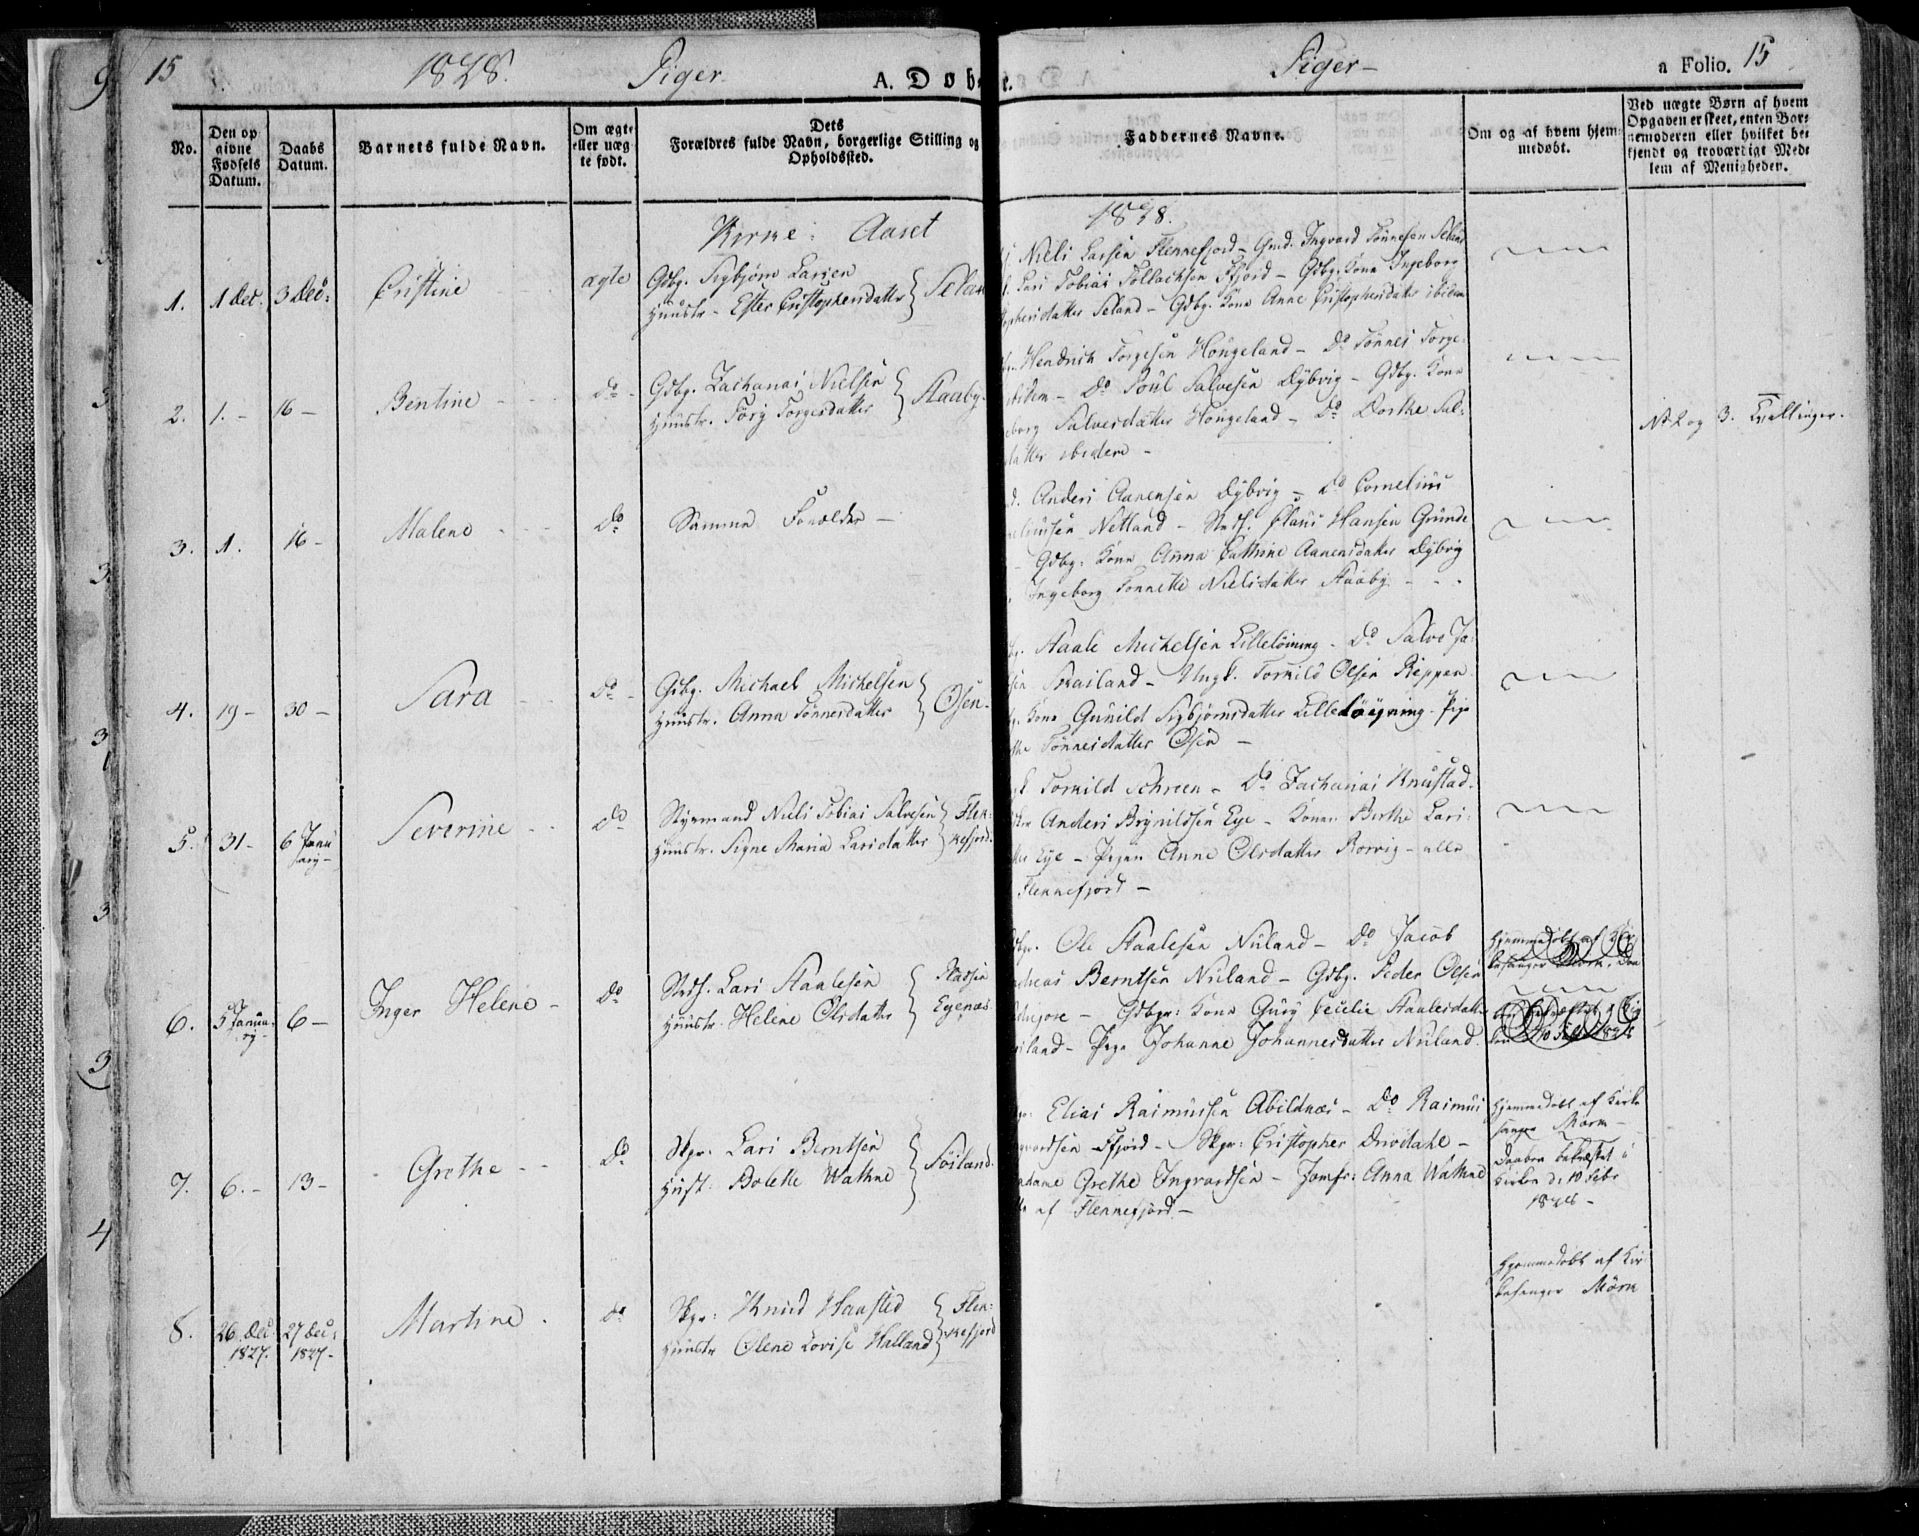 15 1828. Piger A. Døbte. Piger - a Folio. 15
No.
Den op
givne
Fødsels
Datum.
Daabs
Datum.
Barnets fulde Navn.
Om ægte
eller uæg
te født.
Dets
Forældres fulde Navn, borgerlige Stilling og
Opholdssted.
Faddernes Navne.
Om og af hvem hjem-
medøbt.
Ved uægte Børn af hvem
Opgaven er skeet, enten Bar-
nemoderen eller hvilket be
kjendt og troværdigt Med-
lem af Menigheden.
Kirke: Aaret
1828.
1. 1 Dec. 3 Dec: Cristine ægte
Gdbg. Sigbjørn Larsen
Hustr- Ester Cristophersdatter } Selan
Niels Larsen Flennefjord - Gmd. Ingvard Tønnesen Seland
Lars Tobias Tollacksen Ffjord - Gdbg. Kone Ingeborg
tophersdatter Seland - Gdbg. Kone Anne Cristophersdatter ibidem
2. 1. - 16 - Bentine - Do -
Gdbg. Zacharias Nielsen
Hustr. Torg Torgersdatter } Staaby.
Hendrich Torgesen Hougeland - Do Tønnes Torge-
ibidem - Do Poul Salvesen Dybvig - Gdbg. Kone
eborg Salvesdatter Hougeland - Do Dorthe Sal-
datter ibidem -
No 2 og 3. Tvillinger.
3. 1. 16 - Malene Do Samme Forælder -
Anders Aanensen Dybvig - Do Cornelius
neliusen Netland - Claus Hansen Grunde
- Gdbg: Kone Anna Cathrine Aanensdatter Dybvig
Ingeborg Tonnette Nielsdatter Staaby - - -
4. 19 - 30 - Sara Do -
Gdbg. Michael Michelsen
Hustr. Anna Tønnesdatter } Osen.
Staale Michelsen Lilleløining - Do Salve Ja-
sen Skailand - Ungk. Tormild Olsen Reppen
Kone Gunild Sigbjørnsdatter Lilleløigning - Pige
the Tønnesdatter Osen -
5. 31 - 6 Janu
ary - Severine - - Do
Styrmand Niels Tobias Salvesen } Flen-
Hustr. Signe Maria Larsdatter } kefjord.
Tormild Schreen - Do Zacharias Knustad.
Anders Brynildsen Eye - Koner Berthe Lars-
Eye - Pigen Anne Olsdatter Rørvig - alle
Flennefjord -
6. 5 Janua-
ry - 6 - Inger Helene - Do
Lars Staalesen
Hustr. Helene Olsdatter } Pladsen
Egenæs
Ole Staalesen Nuland - Do Jacob
Andreas Berntsen Nuland - Gdbg. Peder Olsen
- Gdbgr: Kone Gury Cecilie Staalesdatter
land - Pige Johanne Johannesdatter Nuland.
Hjemmedøbt af Kir-
kesanger Mørn. Daa
7. 6. - 13 - Grethe - - Do
Skpr: Lars Berntsen
Hust: Bolette Wathne } Føiland.
Elias Rasmussen Abildnæs - Do Rasmus
gvordsen Ffjord - Skpr: Cristopher Drivdahl -
adame Grethe Ingvordsen - Jomfr: Anna Wathne
alle af Flennefjord -
Hjemmedøbt af Kirke
sanger Mørn -
Daaben bekræftet i
Kirken d: 10 Febr
1828 -
8. 26 Dec
1827. 27 Dec:
1827 - Martine. Do
Skpr: Knud Hansted
Hustr Olene Lovise Halland } Flen-
kefjord
Hjemmedøbt af Kir
kesanger Mørn